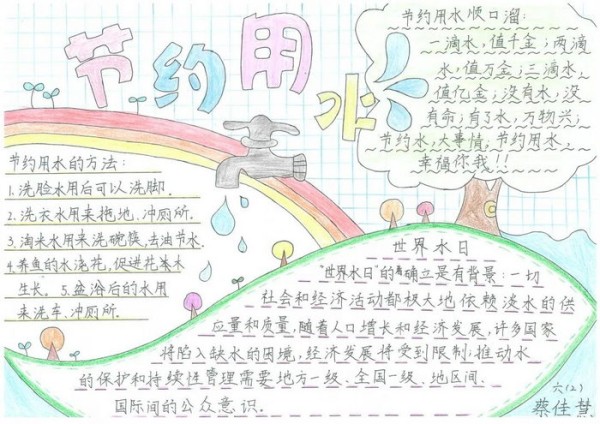 节约用水
节约用水顺口溜:
一滴水,值千金;两滴
水,值万金;三滴水,
值亿金;没有水,没
有命;有了水,万物兴;
节约水,大事情,节约用水,
幸福你我!!
节约用水的方法:
1.洗脸水用后可以洗脚.
2.洗衣水用来拖地、冲厕所.
3.淘米水用来洗碗筷,去油节水.
4.养鱼的水浇花,促进花木
生长。5.盆浴后的水用
来洗车、冲厕所.
世界水日
"世界水日"的确立是有背景:一切
社会和经济活动都极大地依赖淡水的供
应量和质量,随着人口增长和经济发展,许多国家
将陷入缺水的困境,经济发展将受到限制;推动水
的保护和持续性管理需要地方一级、全国一级、地区间、
国际间的公众意识.
六(2)
蔡佳慧